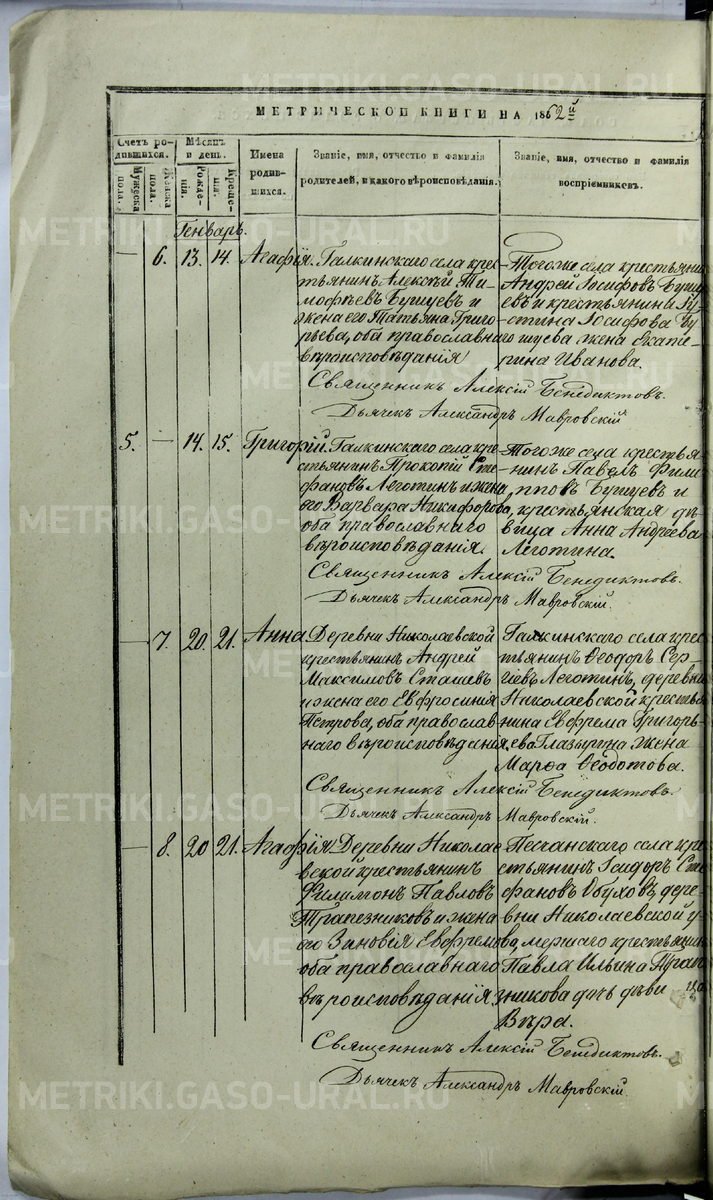 METRIKI.GASO-URAL.RU
МЕТРИЧЕСКОЙ КНИГИ НА 1862й
Счетъ родившихся.
Мужеска пола.
Женска пола.
Мѣсяцъ и день.
Рожденія.
Крещенія.
Имена родившихся.
Званіе, имя, отчество и фамилія родителей, и какого вѣроисповѣданія.
Званіе, имя, отчество и фамилія воспріемниковъ.
Генварь.
— 6. 13. 14. Агафія.
Галкинскаго села крес-
тьянинъ Алексѣй Ти-
мофѣевъ Бушуевъ и
жена его Татьяна Григо-
рьева, оба православнаго
вѣроисповѣданія
Тогоже села крестьянинъ
Андрей Іосифовъ Бушу-
евъ и крестьянина Іу-
стина Іосифова Бу-
шуева жена Екате-
рина Иванова.
Священникъ Алексій Бенедиктовъ.
Дьячекъ Александръ Мавровскій
5. — 14. 15. Григорій.
Галкинскаго села кре-
стьянинъ Прокопій Сте-
фановъ Леготинъ и жена
его Варвара Никифорова,
оба православнаго
вѣроисповѣданія
Тогоже села крестья-
нинъ Павелъ Фили-
пповъ Бушуевъ и
крестьянская дѣ-
вица Анна Андреева
Леготина.
Священникъ Алексій Бенедиктовъ.
Дьячекъ Александръ Мавровскій.
— 7. 20. 21. Анна
Деревни Николаевской
крестьянинъ Андрей
Максимовъ Сташевъ
и жена его Евфросинія
Петрова, оба православ-
наго вѣроисповѣданія
Галкинскаго села крес-
тьянинъ Ѳеодоръ Сер-
гіевъ Леготинъ, деревни
Николаевской крестья-
нина Евфрема Григорь-
ева Глазырина жена
Марѳа Ѳеодотова.
Священникъ Алексій Бенедиктовъ.
Дьячекъ Александръ Мавровскій.
— 8. 20 21. Агафія
Деревни Николае-
вской крестьянинъ
Филимонъ Павловъ
Трапезниковъ и жена
его Зиновія Евфремова,
оба православнаго
вѣроисповѣданія
Песчанскаго села кре-
стьянинъ Ісидоръ Сте-
фановъ Обуховъ, дере-
вни Николаевской у-
мершаго крестьянина
Павла Ильина Трапе-
зникова дочь дѣвица
Вѣра.
Священникъ Алексій Бенедиктовъ.
Дьячекъ Александръ Мавровскій
METRIKI.GASO-URAL.RU